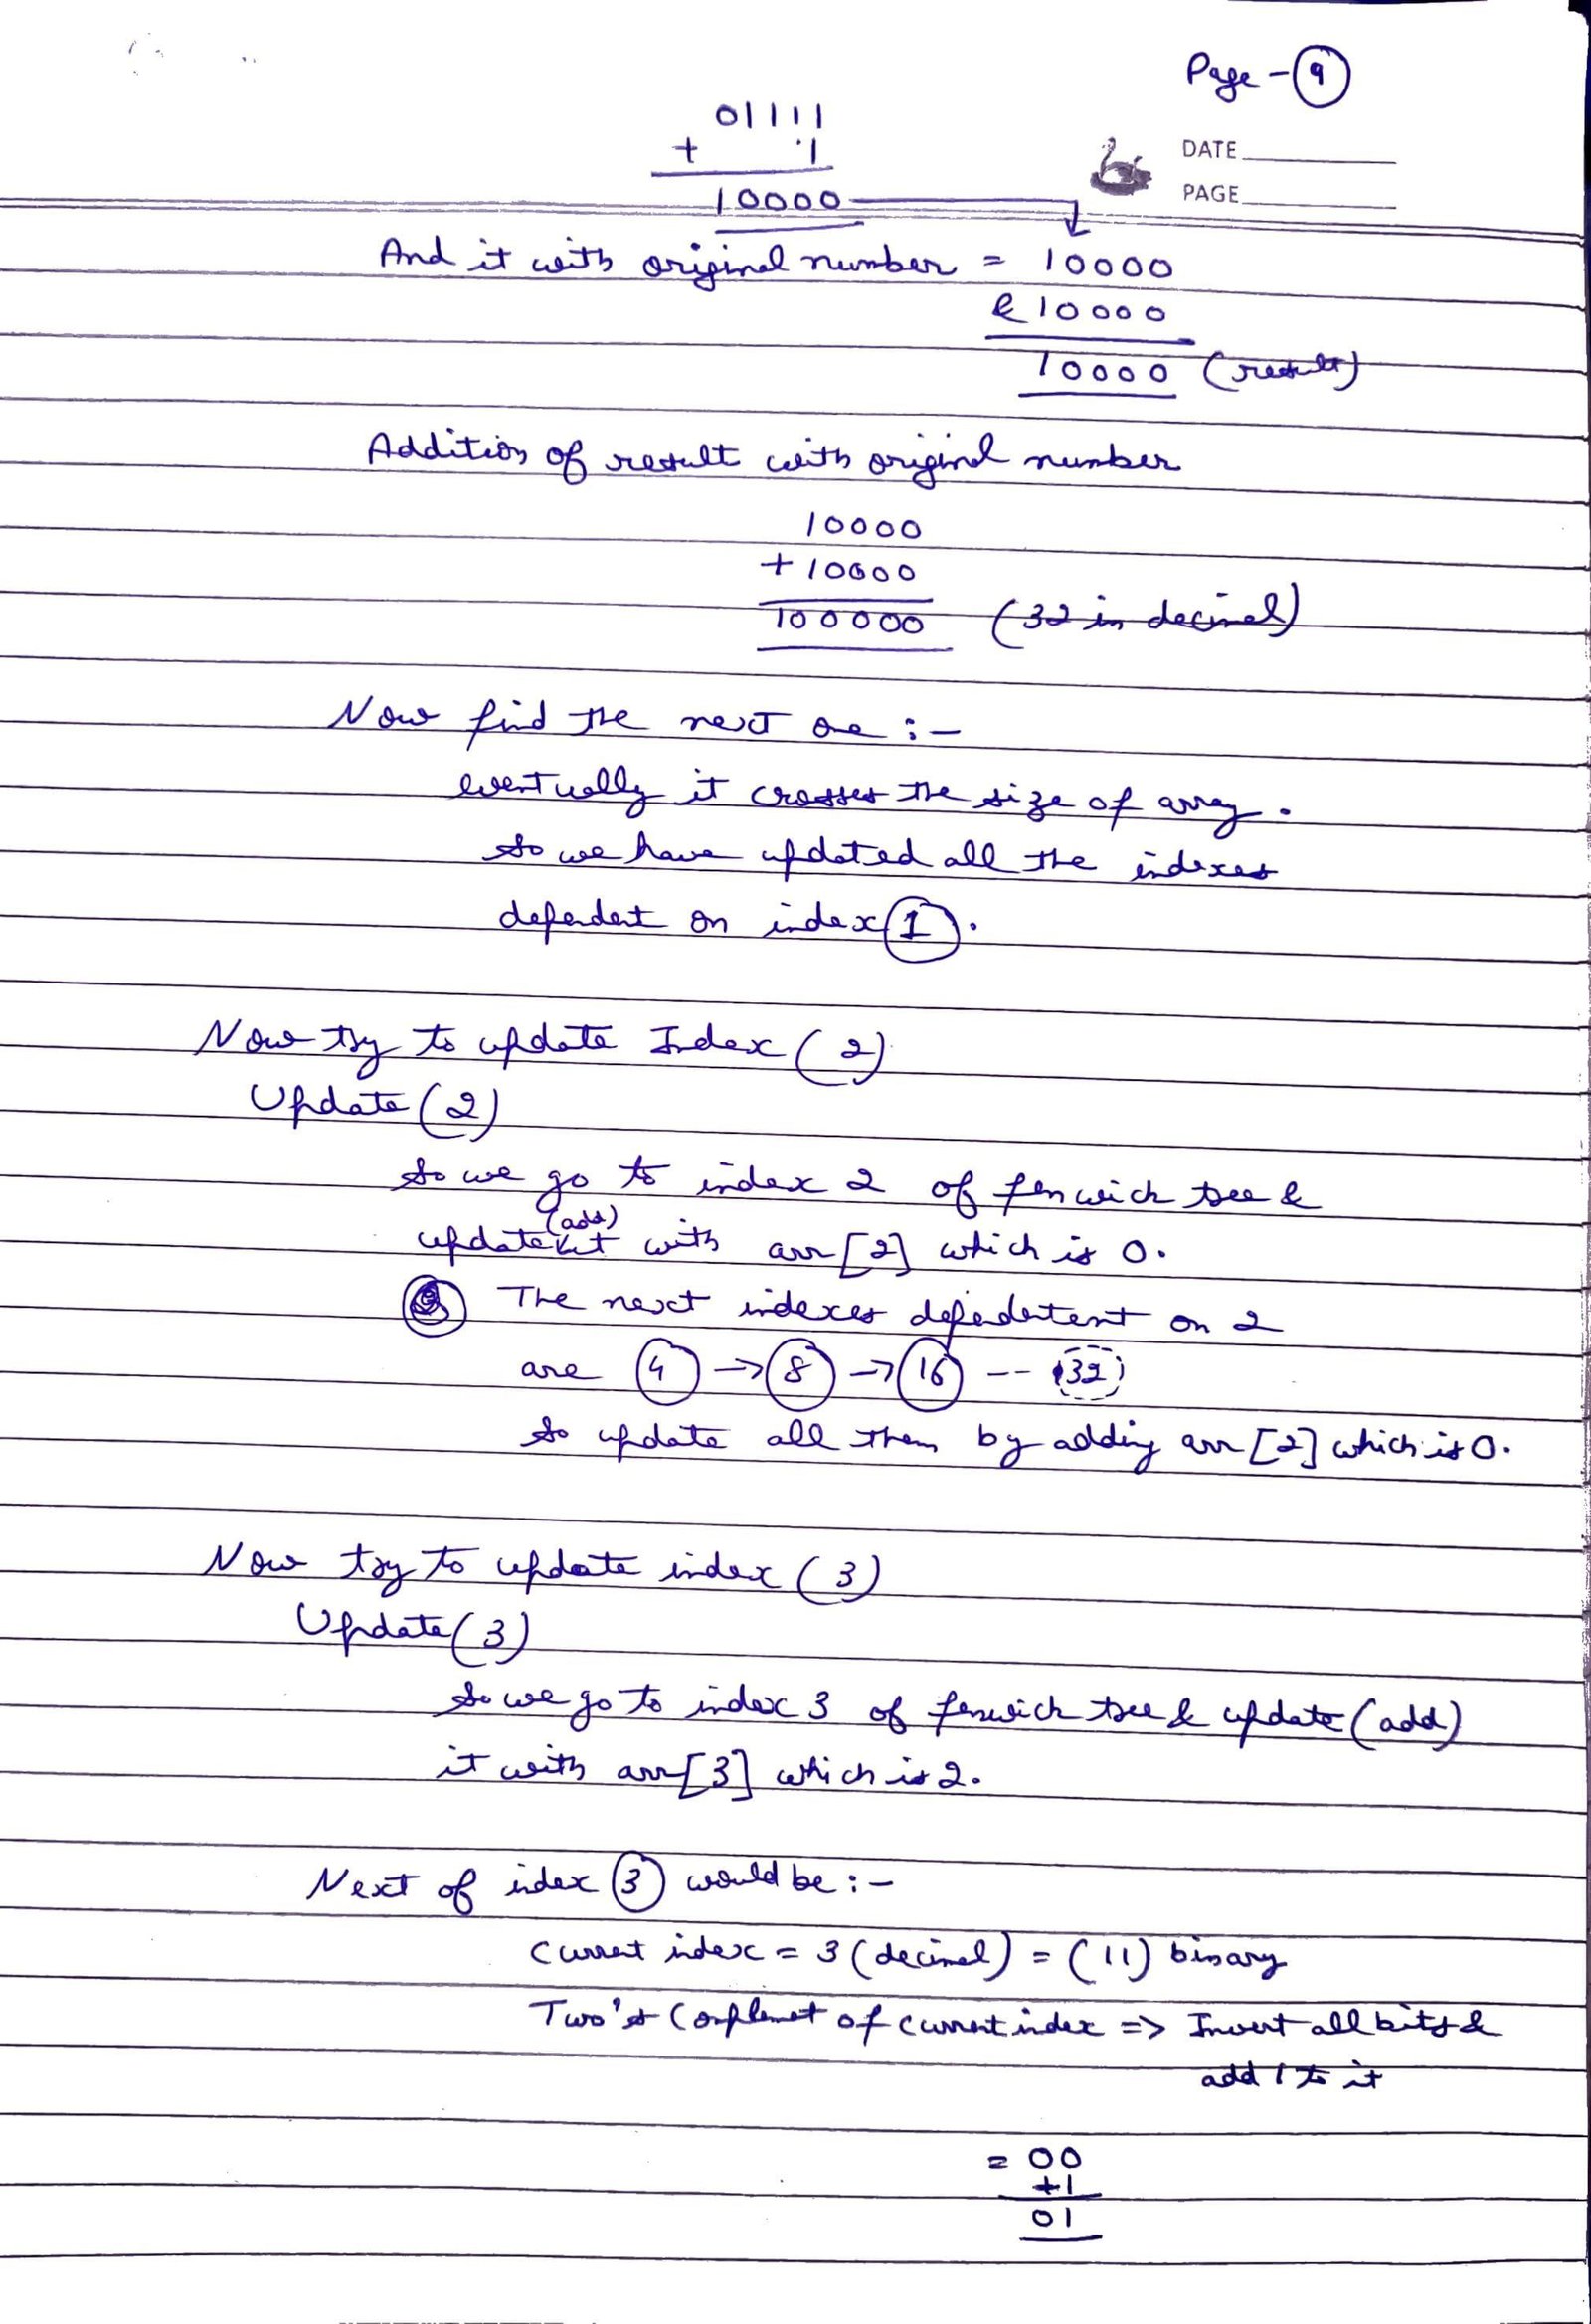 Page - 9
DATE
PAGE
01111
+ 1
10000
And it with original number = 10000
& 10000
10000 (result)
Addition of result with original number
10000
+ 10000
100000 (32 in decimal)
Now find the next one :-
eventually it crosses the size of array.
So we have updated all the indexes
dependent on index 1.
Now try to update Index (2)
Update (2)
So we go to index 2 of fenwick tree &
(add)
update it with arr[2] which is 0.
The next indexes depedentent on 2
are 4 → 8 → 16 -- 32
So update all them by adding arr[2] which is 0.
Now try to update index (3)
Update (3)
So we go to index 3 of fenwick tree & update (add)
it with arr[3] which is 2.
Next of index 3 would be :-
Current index = 3 (decimal) = (11) binary
Two's Complement of current index => Invert all bits &
add 1 to it
= 00
+1
01